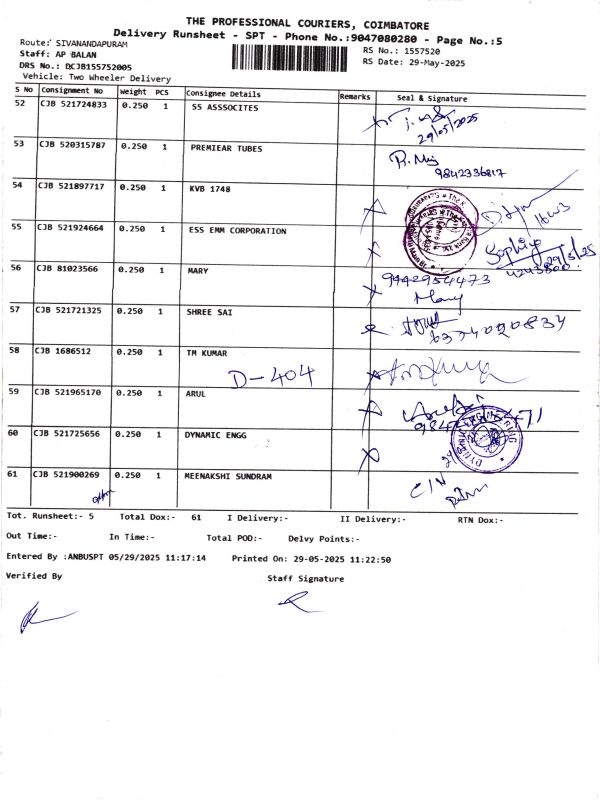 THE PROFESSIONAL COURIERS, COIMBATORE
Delivery Runsheet - SPT - Phone No.:9047080280 - Page No.:5
Route: SIVANANDAPURAM
Staff: AP BALAN
DRS No.: DCJB155752005
Vehicle: Two Wheeler Delivery
RS No.: 1557520
RS Date: 29-May-2025
S No Consignment No Weight PCS Consignee Details Remarks Seal & Signature
52 CJB 521724833 0.250 1 SS ASSSOCITES
29/05/2025
53 CJB 520315787 0.250 1 PREMIEAR TUBES
9842336817
54 CJB 521897717 0.250 1 KVB 1748
55 CJB 521924664 0.250 1 ESS EMM CORPORATION
Sophiya 29/5/25
56 CJB 81023566 0.250 1 MARY
9442954473
Mary
57 CJB 521721325 0.250 1 SHREE SAI
6374020834
58 CJB 1686512 0.250 1 TM KUMAR
D-404
59 CJB 521965170 0.250 1 ARUL
60 CJB 521725656 0.250 1 DYNAMIC ENGG
DYNAMIC ENGINEERING
61 CJB 521900269 0.250 1 MEENAKSHI SUNDRAM
Tot. Runsheet:- 5 Total Dox:- 61 I Delivery:- II Delivery:- RTN Dox:-
Out Time:- In Time:- Total POD:- Delvy Points:-
Entered By :ANBUSPT 05/29/2025 11:17:14 Printed On: 29-05-2025 11:22:50
Verified By Staff Signature